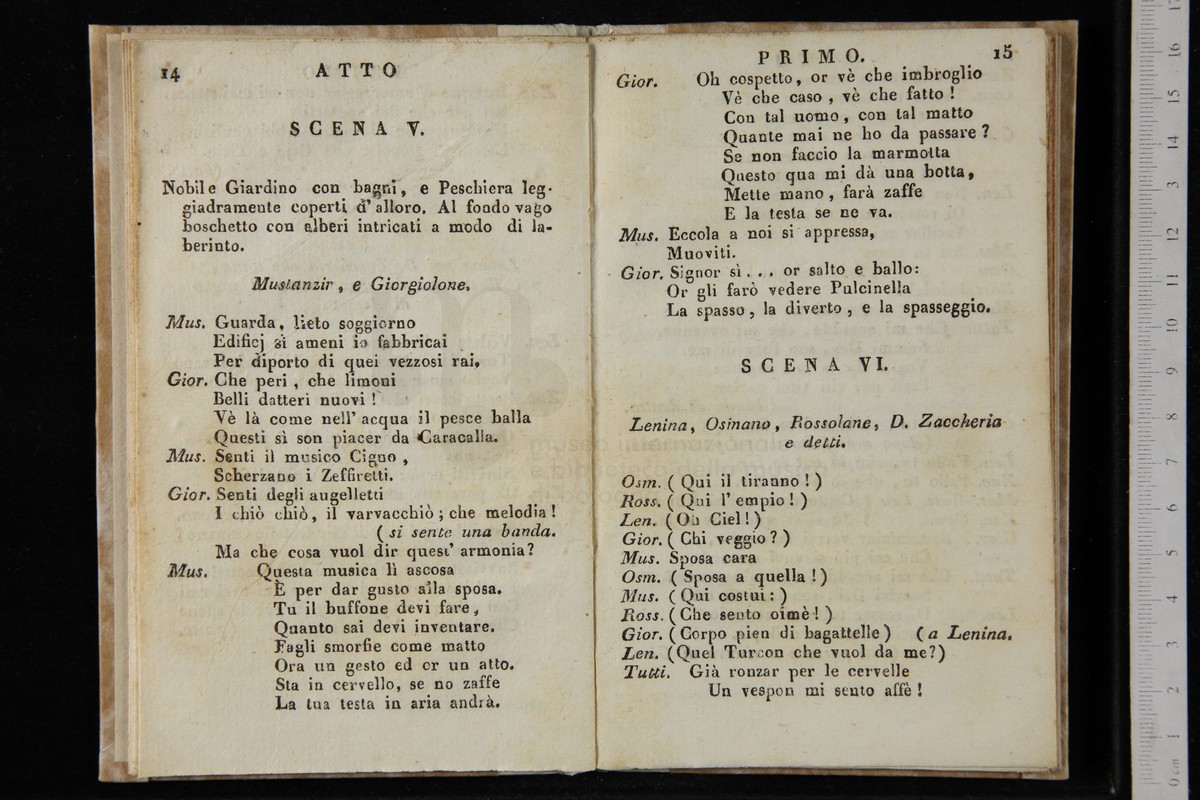 14
ATTO
SCENA V.
Nobile Giardino con bagni, e Peschiera leg-
giadramente coperti d'alloro. Al fondo vago
boschetto con alberi intricati a modo di la-
berinto.
Mustanzir, e Giorgiolone.
Mus. Guarda, lieto soggiorno
Edificj sì ameni io fabbricai
Per diporto di quei vezzosi rai,
Gior. Che peri, che limoni
Belli datteri nuovi!
Vè là come nell' acqua il pesce balla
Questi sì son piacer da Caracalla.
Mus. Senti il musico Cigno,
Scherzano i Zeffiretti.
Gior. Senti degli augelletti
I chiò chiò, il varvacchiò; che melodia!
(si sente una banda.
Ma che cosa vuol dir quest' armonia?
Mus. Questa musica lì ascosa
È per dar gusto alla sposa.
Tu il buffone devi fare,
Quanto sai devi inventare.
Fagli smorfie come matto
Ora un gesto ed or un atto.
Sta in cervello, se no zaffe
La tua testa in aria andrà.
PRIMO.
15
Gior. Oh cospetto, or vè che imbroglio
Vè che caso, vè che fatto!
Con tal uomo, con tal matto
Quante mai ne ho da passare?
Se non faccio la marmotta
Questo qua mi dà una botta,
Mette mano, farà zaffe
E la testa se ne va.
Mus. Eccola a noi si appressa,
Muoviti.
Gior. Signor sì... or salto e ballo:
Or gli farò vedere Pulcinella
La spasso, la diverto, e la spasseggio.
SCENA VI.
Lenina, Osmano, Rossolane, D. Zaccheria
e detti.
Osm. (Qui il tiranno!)
Ross. (Qui l' empio!)
Len. (Oh Ciel!)
Gior. (Chi veggio?)
Mus. Sposa cara
Osm. (Sposa a quella!)
Mus. (Qui costui:)
Ross. (Che sento oimè!)
Gior. (Corpo pien di bagattelle) (a Lenina.
Len. (Quel Turcon che vuol da me?)
Tutti. Già ronzar per le cervelle
Un vespon mi sento affè!